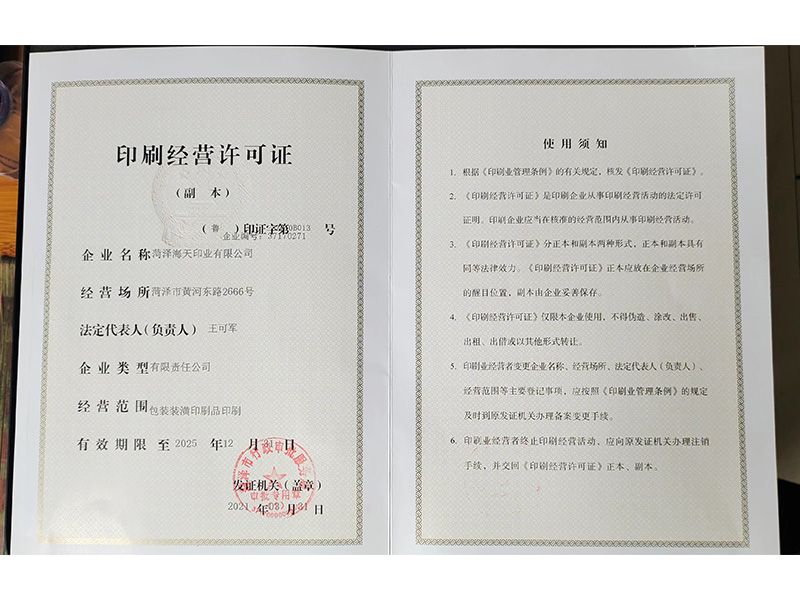 印刷经营许可证
（副 本）
（鲁 ）印证字第 号
企业编号：37170271
企业名称 菏泽海天印业有限公司
经营场所 菏泽市黄河东路2666号
法定代表人(负责人) 王可军
企业类型 有限责任公司
经营范围 包装装潢印刷品印刷
有效期限 至 2025 年 12 月 31 日
发证机关（盖章）
审批专用章
2021 年 03 月 31 日
使用须知
1. 根据《印刷业管理条例》的有关规定，核发《印刷经营许可证》。
2. 《印刷经营许可证》是印刷企业从事印刷经营活动的法定许可
证明。印刷企业应当在核准的经营范围内从事印刷经营活动。
3. 《印刷经营许可证》分正本和副本两种形式，正本和副本具有
同等法律效力。《印刷经营许可证》正本应放在企业经营场所
的醒目位置，副本由企业妥善保存。
4. 《印刷经营许可证》仅限本企业使用，不得伪造、涂改、出售、
出租、出借或以其他形式转让。
5. 印刷业经营者变更企业名称、经营场所、法定代表人（负责人）、
经营范围等主要登记事项，应按照《印刷业管理条例》的规定
及时到原发证机关办理备案变更手续。
6. 印刷业经营者终止印刷经营活动、应向原发证机关办理注销
手续，并交回《印刷经营许可证》正本、副本。